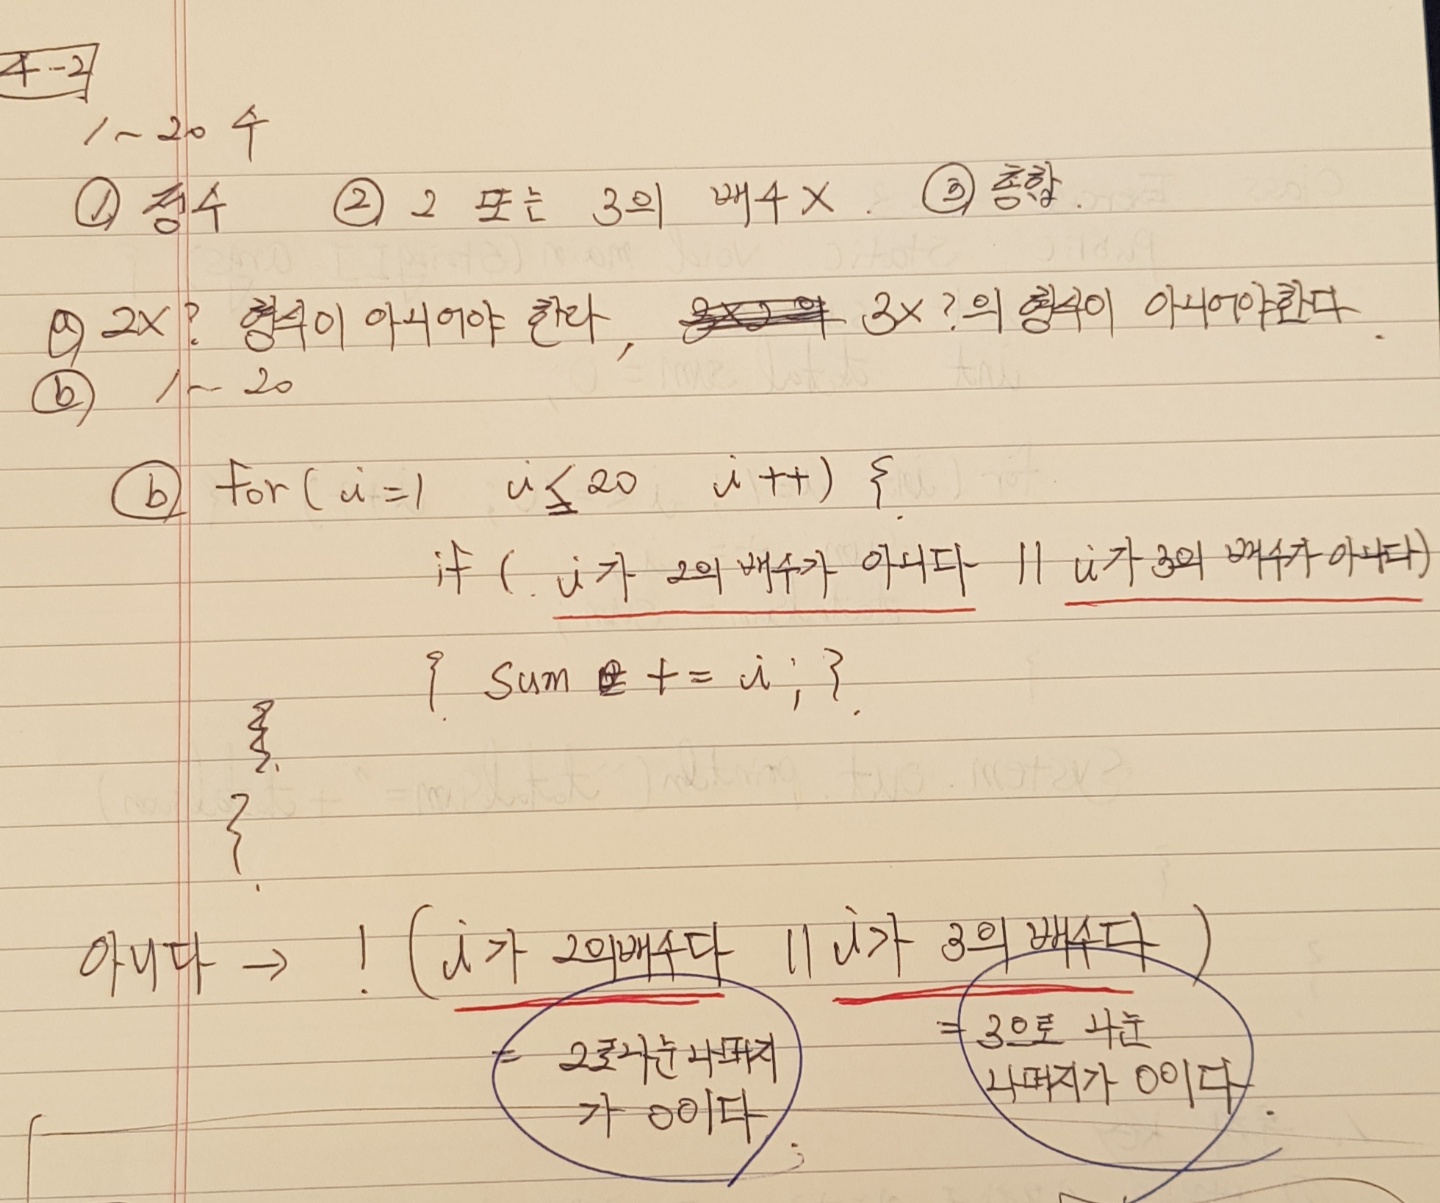 4-2
1~20 수
① 정수 ② 2 또는 3의 배수 X. ③ 총합.
ⓐ 2X? 형식이 아니어야 한다, 3X?의 형식이 아니어야한다.
ⓑ 1~20
ⓑ for( i=1 i≤20 i++) {
if ( i가 2의 배수가 아니다 || i가 3의 배수가 아니다)
{ sum += i; }
}
아니다 → ! (i가 2의배수다 || i가 3의 배수다)
= 2로나눈나머지 = 3으로 나눈
가 0이다 나머지가 0이다.